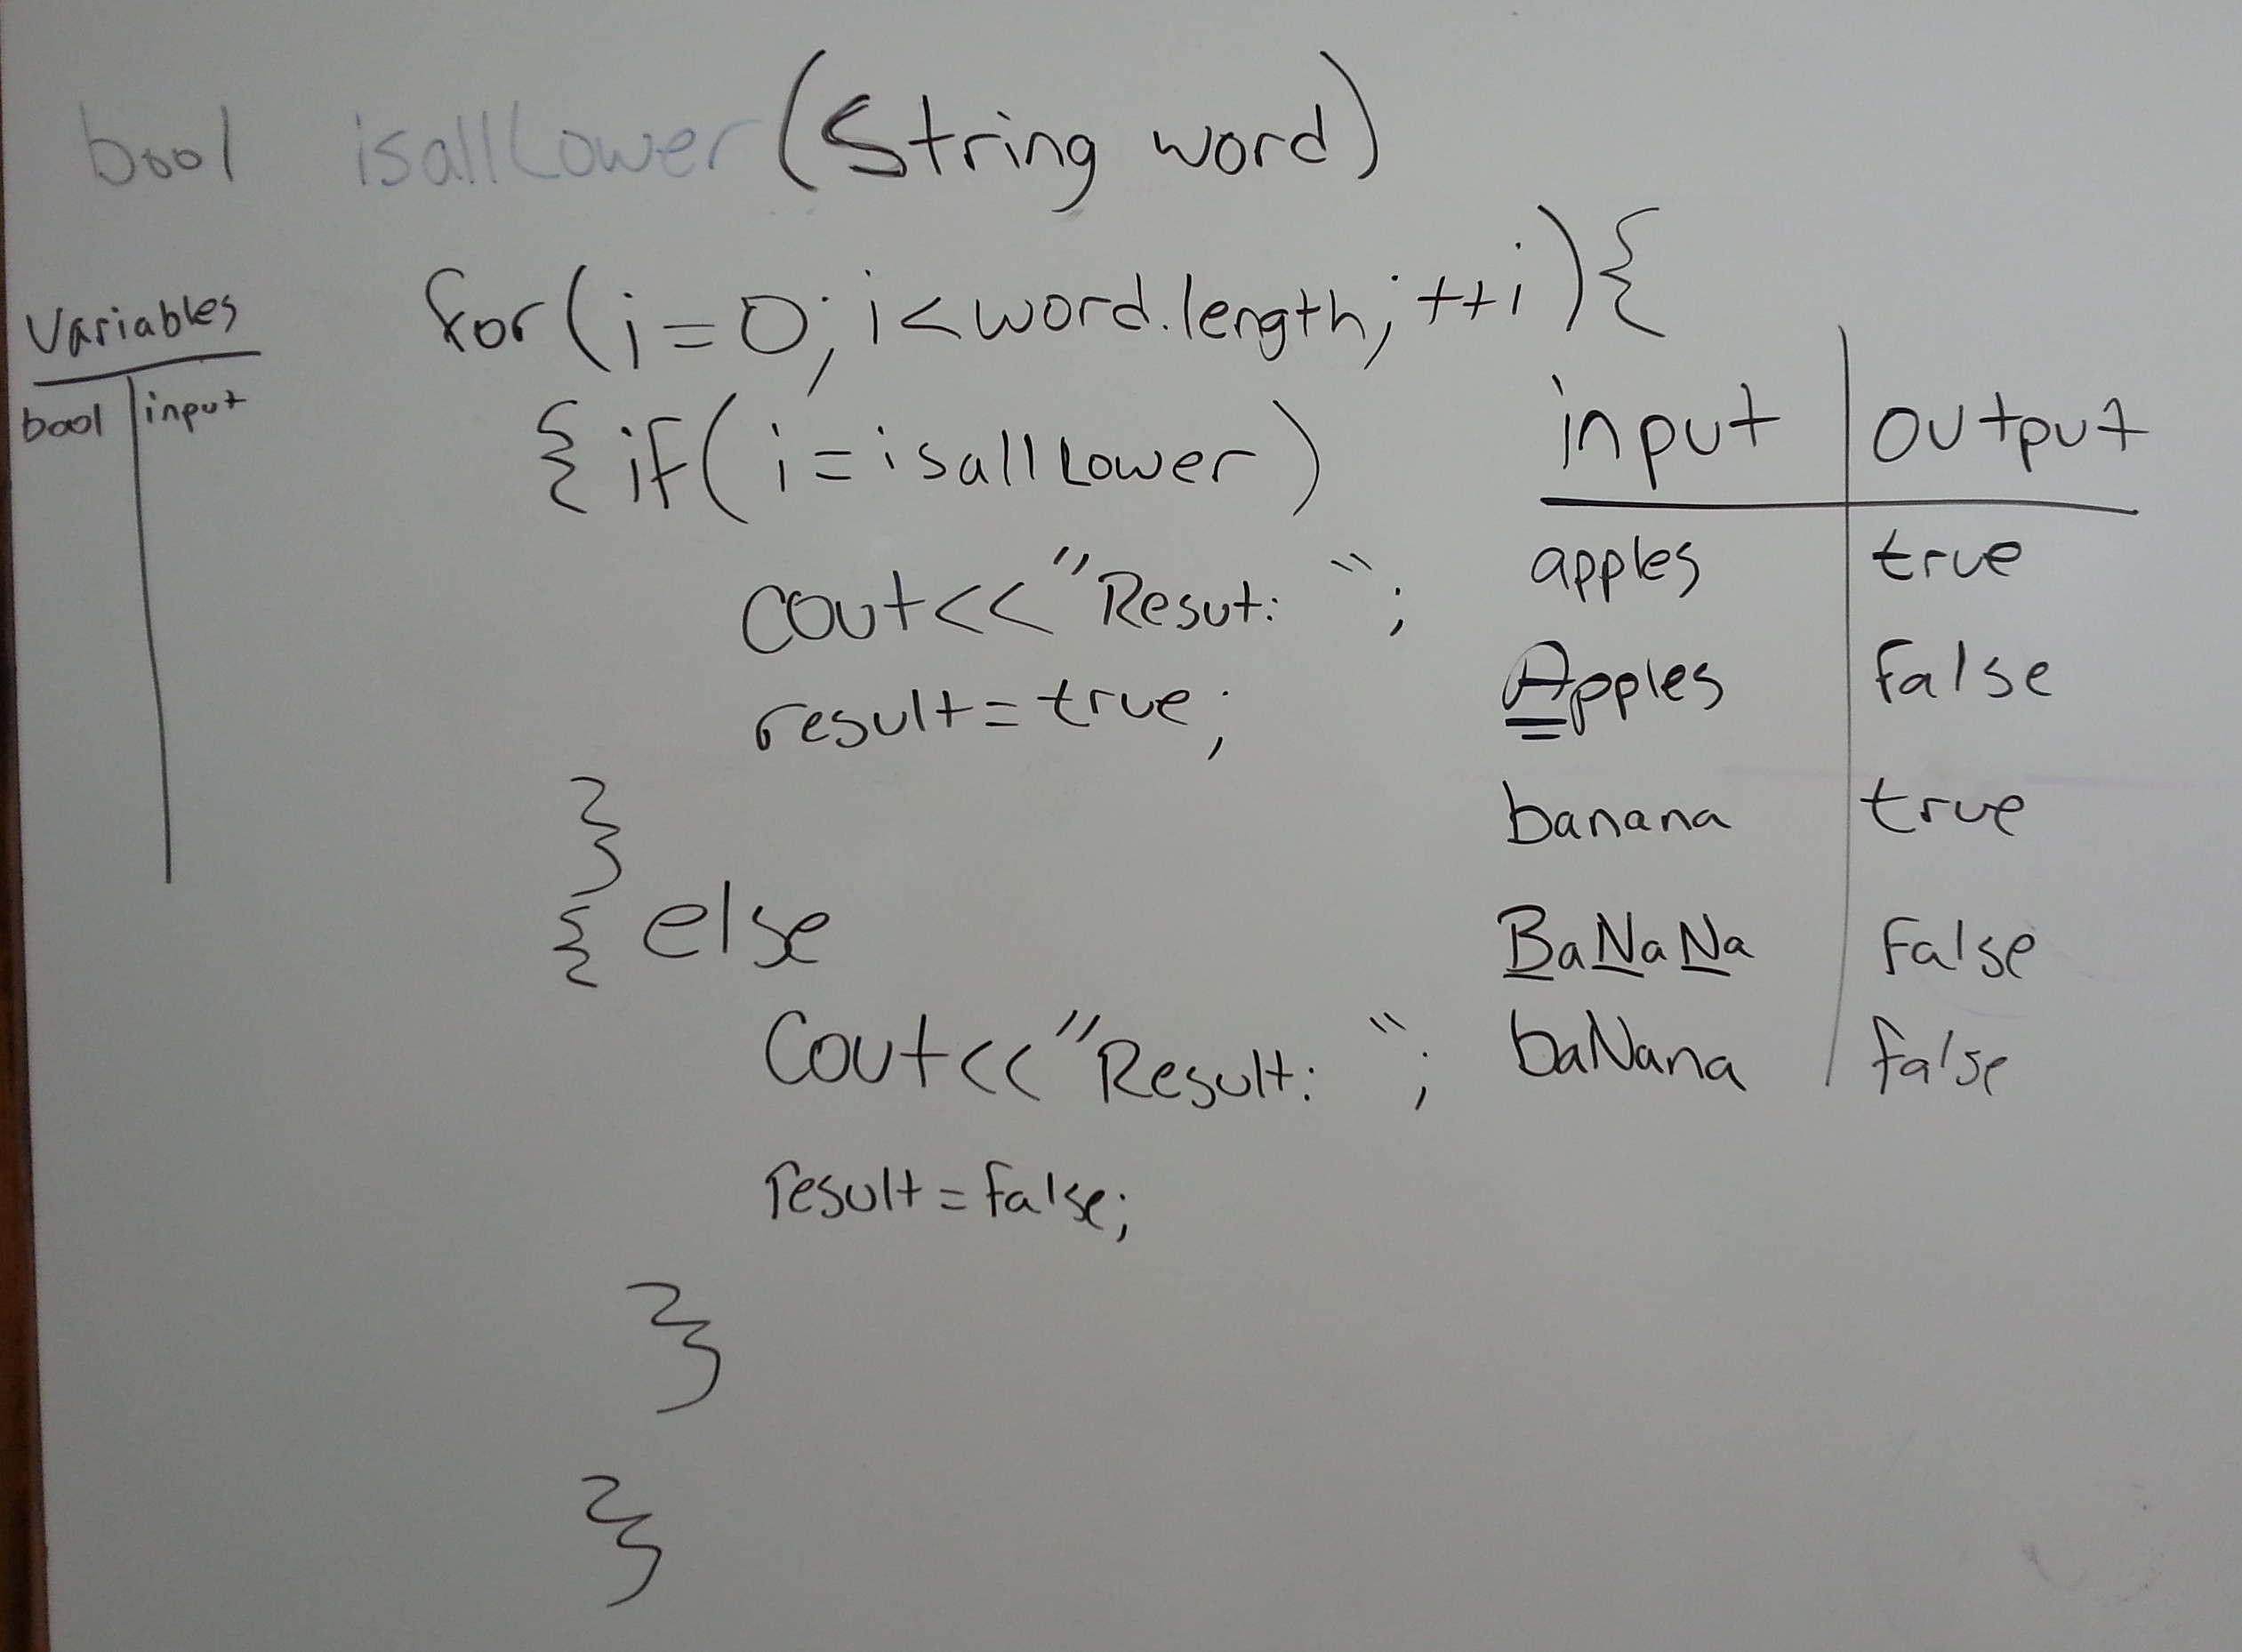 bool isallLower (String word)
for (i=0; i<word.length; ++i){
{ if( i = isallLower )
cout<<"Resut: ";
result = true;
}
{ else
Cout<<"Result: ";
result = false;
}
}
Variables
bool | input
input | output
apples | true
Apples | false
banana | true
BaNaNa | false
baNana | false